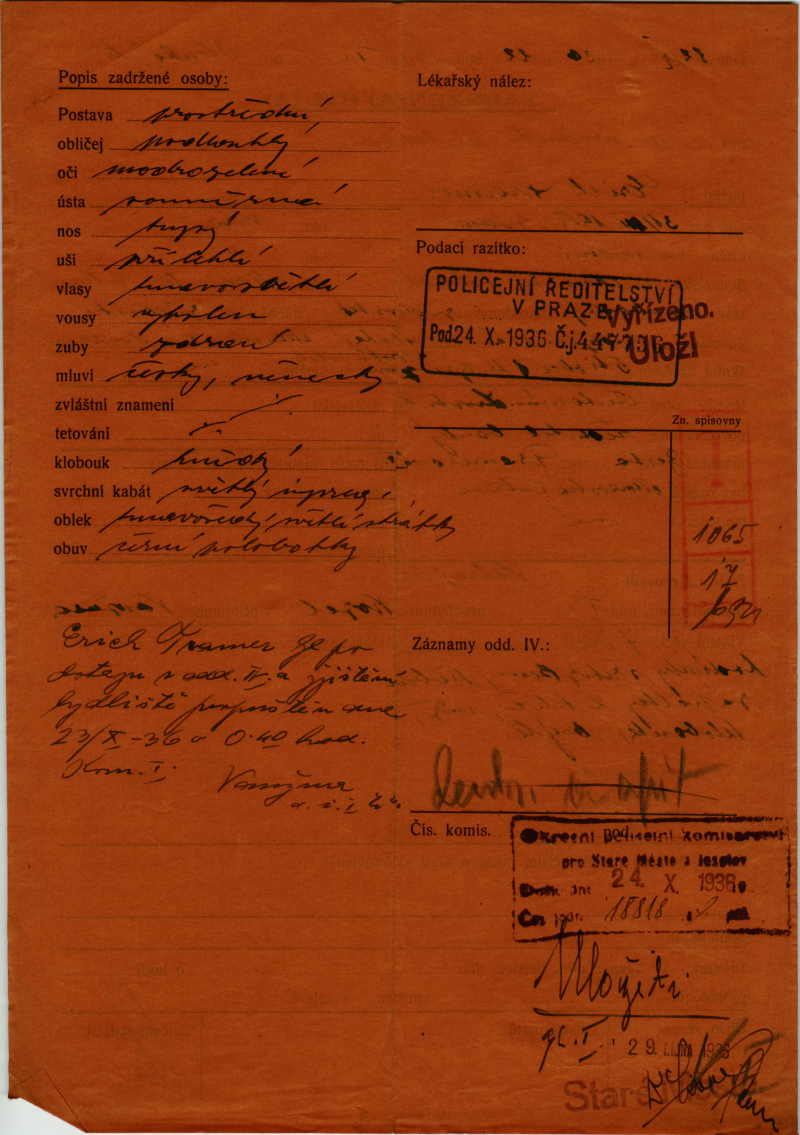 Popis zadržené osoby:
Postava prostřední
obličej podlouhlý
oči modrozelené
ústa souměrná
nos tupý
uši přilehlé
vlasy tmavosvětlé
vousy vyholen
zuby zdravé
mluví česky, německy
zvláštní znamení
tetování
klobouk hnědý
svrchní kabát světlý
oblek tmavošedý, světlé
obuv černé polobotky
Erich Tramer je po
dotazu v odd. IV. a zjištění
bydliště propuštěn dne
23/X - 36 o 0.40 hod.
Kom. I.
Lékařský nález:
Podací razítko:
POLICEJNÍ ŘEDITELSTVÍ
V PRAZE
Pod. 24. X. 1936 Č.j.
Vyřízeno.
Uloží
Zn. spisovny
1065
17
Záznamy odd. IV.:
Čís. komis.
Okresní policejní komisařství
pro Staré Město a Josefov
Došlo dne 24. X. 1936
Čís. jedn. 18818
Uložiti
29. 1936
Staré